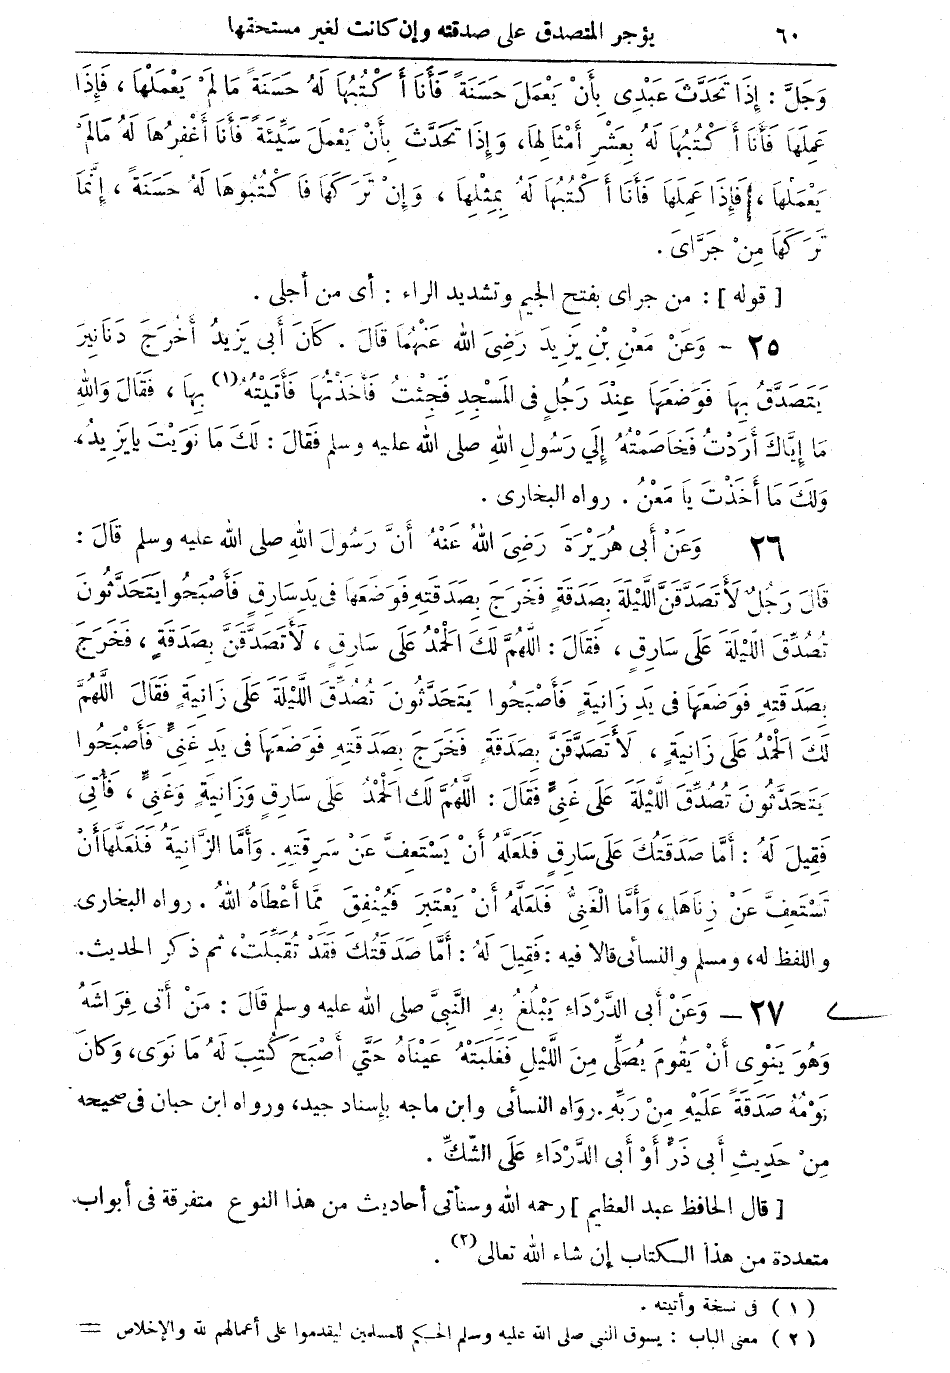 ٦٠ يؤجر المتصدق على صدقته وإن كانت لغير مستحقها
وَجَلَّ : إِذَا تَحَدَّثَ عَبْدِى بِأَنْ يَعْمَلَ حَسَنَةً فَأَنَا أَكْتُبُهَا لَهُ حَسَنَةً مَا لَمْ يَعْمَلْهَا ، فَإِذَا
عَمِلَهَا فَأَنَا أَكْتُبُهَا لَهُ بِعَشْرِ أَمْثَالِهَا، وَإِذَا تَحَدَّثَ بِأَنْ يَعْمَلَ سَيِّئَةً فَأَنَا أَغْفِرُهَا لَهُ مَالَمْ
يَعْمَلْهَا ، فَإِذَا عَمِلَهَا فَأَنَا أَكْتُبُهَا لَهُ بِمِثْلِهَا ، وَإِنْ تَرَكَهَا فَاكْتُبُوهَا لَهُ حَسَنَةً ، إِنَّمَا
تَرَكَهَا مِنْ جَرَّاىَ .
[ قوله ] : من جراى بفتح الجيم وتشديد الراء : أى من أجلى .
٢٥ - وَعَنْ مَعْنِ بْنِ يَزِيدَ رَضِىَ الله عَنْهُمَا قَالَ . كَانَ أَبى يَزِيدُ أَخْرَجَ دَنَانِيرَ
يَتَصَدَّقُ بِهَا فَوَضَعَهَا عِنْدَ رَجُلٍ فى الْمَسْجِدِ فَجِئْتُ فَأَخَذْتُهَا فَأَتَيْتُهُ(١) بِهَا ، فَقَالَ وَاللهِ
مَا إِيَّاكَ أَرَدْتُ فَخَاصَمْتُهُ إِلَي رَسُولِ اللهِ صلى الله عليه وسلم فَقَالَ : لَكَ مَا نَوَيْتَ يايَزِيدُ،
وَلَكَ مَا أَخَذْتَ يَا مَعْنُ . رواه البخارى .
٢٦ وَعَنْ أَبى هُرَيْرَةَ رَضِىَ اللهُ عَنْهُ أَنَّ رَسُولَ اللهِ صلى الله عليه وسلم قَالَ :
قَالَ رَجُلٌ لَأَتَصَدَّقَنَّ اللَّيْلَةَ بِصَدَقَةٍ فَخَرَجَ بِصَدَقَتِهِ فَوَضَعَهَا فى يَدِ سَارِقٍ فَأَصْبَحُوا يَتَحَدَّثُونَ
تُصُدِّقَ اللَّيْلَةَ عَلَى سَارِقٍ ، فَقَالَ : اللَّهُمَّ لَكَ الْحَمْدُ عَلَى سَارِقٍ ، لَأَتَصَدَّقَنَّ بِصَدَقَةٍ ، فَخَرَجَ
بِصَدَقَتِهِ فَوَضَعَهَا فى يَدِ زَانِيَةٍ فَأَصْبَحُوا يَتَحَدَّثُونَ تُصُدِّقَ اللَّيْلَةَ عَلَى زَانِيَةٍ فَقَالَ اللَّهُمَّ
لَكَ الْحَمْدُ عَلَى زَانِيَةٍ ، لَأَتَصَدَّقَنَّ بِصَدَقَةٍ فَخَرَجَ بِصَدَقَتِهِ فَوَضَعَهَا فى يَدِ غَنِىٍّ فَأَصْبَحُوا
يَتَحَدَّثُونَ تُصُدِّقَ اللَّيْلَةَ عَلَى غَنِىٍّ فَقَالَ : اللَّهُمَّ لَكَ الْحَمْدُ عَلَى سَارِقٍ وَزَانِيَةٍ وَغَنِىٍّ ، فَأُتِىَ
فَقِيلَ لَهُ : أَمَّا صَدَقَتُكَ عَلَى سَارِقٍ فَلَعَلَّهُ أَنْ يَسْتَعِفَّ عَنْ سَرِقَتِهِ . وَأَمَّا الزَّانِيَةُ فَلَعَلَّهَا أَنْ
تَسْتَعِفَّ عَنْ زِنَاهَا ، وَأَمَّا الْغَنِىُّ فَلَعَلَّهُ أَنْ يَعْتَبِرَ فَيُنْفِقَ مِمَّا أَعْطَاهُ اللهُ . رواه البخارى
واللفظ له، ومسلم والنسائى قالا فيه : فَقِيلَ لَهُ : أَمَّا صَدَقَتُكَ فَقَدْ تُقُبِّلَتْ، ثم ذكر الحديث.
٢٧ – وَعَنْ أَبى الدَّرْدَاءِ يَبْلُغُ بِهِ النَّبِىَّ صلى الله عليه وسلم قَالَ : مَنْ أَتى فِرَاشَهُ
وَهُوَ يَنْوِى أَنْ يَقُومَ يُصَلِّى مِنَ اللَّيْلِ فَغَلَبَتْهُ عَيْنَاهُ حَتَّى أَصْبَحَ كُتِبَ لَهُ مَا نَوَى، وَكَانَ
نَوْمُهُ صَدَقَةً عَلَيْهِ مِنْ رَبِّهِ. رَوَاه النسائى وابن ماجه بإسناد جيد، ورواه ابن حبان فى صحيحه
مِنْ حَدِيثِ أَبى ذَرٍّ أَوْ أَبى الدَّرْدَاءِ عَلَى الشَّكِّ .
[ قال الحافظ عبد العظيم ] رحمه الله وسنأتى أحاديث من هذا النوع متفرقة فى أبواب
متعددة من هذا الكتاب إن شاء الله تعالى(٢) .
( ١ ) فى نسخة وأتيته .
( ٢ ) معنى الباب : يسوق النبى صلى الله عليه وسلم الحكم للمسلمين ليقدموا على أعمالهم لله والإخلاص =